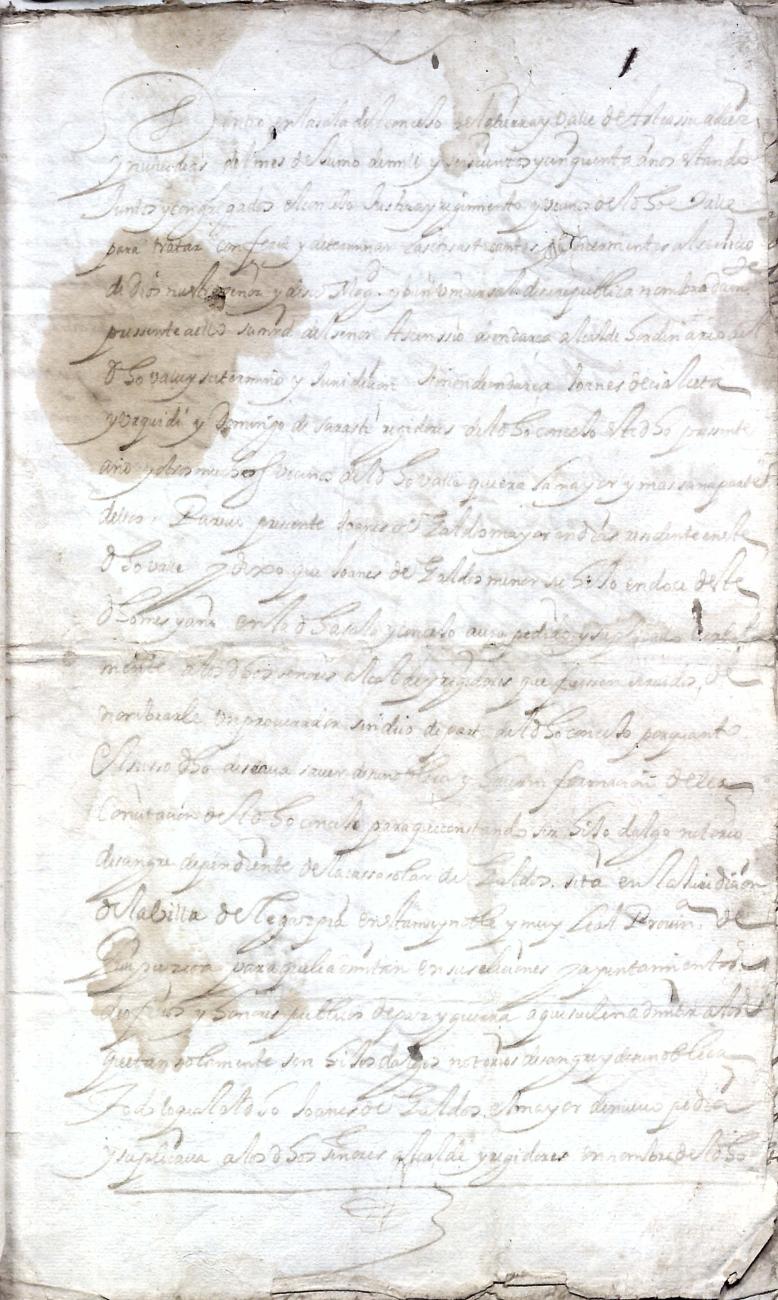 Dentro en la sala del concejo de la tierra y valle de Ascassu a diez
y nueve dias del mes de Junio de mil y seiscientos y cinquenta años estando
Juntos y congregados el concejo Justicia y regimiento y vecinos del dho valle
para tratar conferir y determinar cassos tocantes al servicio
de dios nuestro señor y de su Magd y bien universal de su republica nombradam
pressente a ello su mrd del señor Ascenssio alcalde hordinario del
dho valle y su termino y Juridicion Joanes de
y urquidi y Domingo de sarasti regidores del dho concejo este dho pressente
año y otros muchos vecinos del dho valle que era la mayor y mas sana parte
dellos. Parecio pressente Joanes de Galdos mayor en dias residente en este
dho valle y dixo que Joanes de Galdos menor su hijo en doce deste
dho mes y año en la dha sala y concejo avia pedido y suplicado
mente a los dhos señores alcalde y regidores que fuessen servidos de
nombrarle un procurador sindico de parte del dho concejo por quanto
El susso dho desseava hacer de su nobleza y informacion
Con citacion del dho concejo para que constando ser hijo dalgo notorio
de sangre dependiente de la cassa solar de Galdos sita en la Juridicion
de la billa de Legazpia en esta muy noble y muy leal Provin. de
Guipuzcoa para que le admitan en sus elecciones y ayuntamientos
officios y honores publicos de paz y guerra a que suelen admitir a los
que tan solamente son hijos dalgos notorios de sangre y de su nobleza
Todo lo qual el dho Joanes de Galdos el mayor de nuevo pedia
y suplicava a los dhos señores alcalde y regidores en nombre del dho